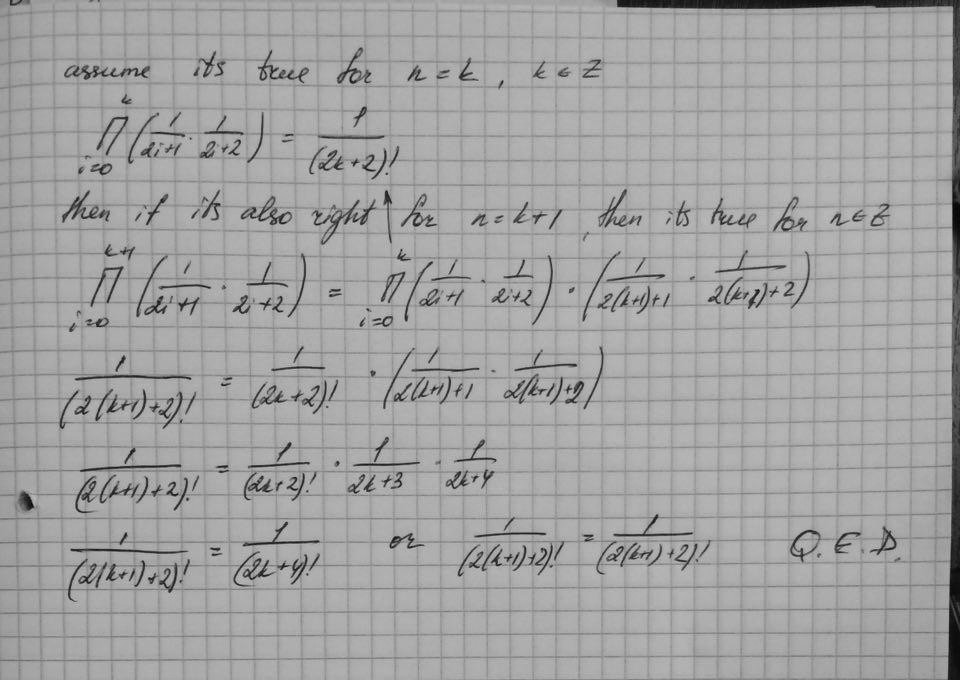 assume its true for n = k, k ∈ Z
k ∏ i=0 (1/(2i+1) · 1/(2i+2)) = 1/(2k+2)!
then if its also right ↑ for n = k+1, then its true for n ∈ Z
k+1 ∏ i=0 (1/(2i+1) · 1/(2i+2)) = k ∏ i=0 (1/(2i+1) · 1/(2i+2)) · (1/(2(k+1)+1) · 1/(2(k+1)+2))
1/(2(k+1)+2)! = 1/(2k+2)! · (1/(2(k+1)+1) · 1/(2(k+1)+2))
1/(2(k+1)+2)! = 1/(2k+2)! · 1/(2k+3) · 1/(2k+4)
1/(2(k+1)+2)! = 1/(2k+4)! or 1/(2(k+1)+2)! = 1/(2(k+1)+2)! Q.E.D.